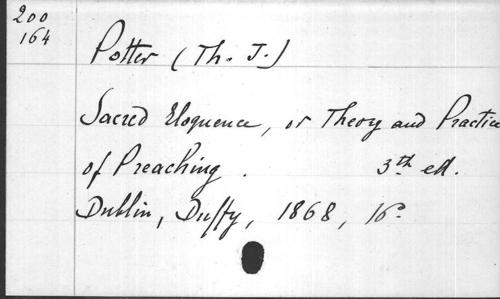 200
164
Potter (Th. J.)
Sacred Eloquence, or Theory and Practice
of Preaching. 3th ed.
Dublin, Duffy, 1868, 16°